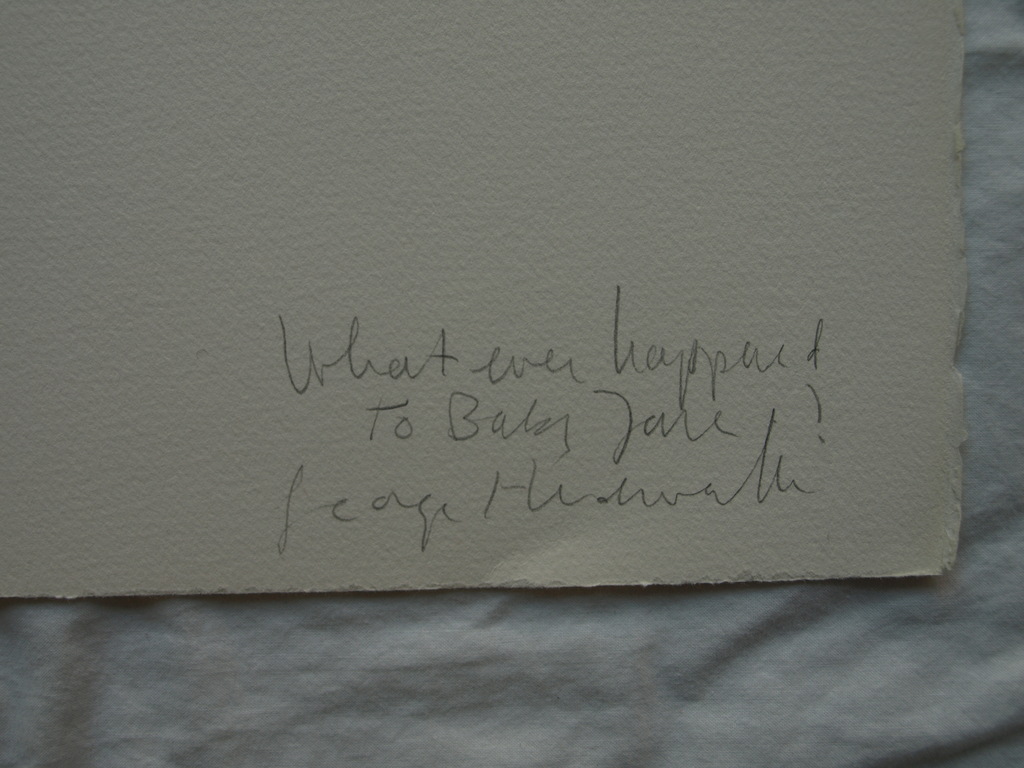 What ever happened
To Baby Jane?
George